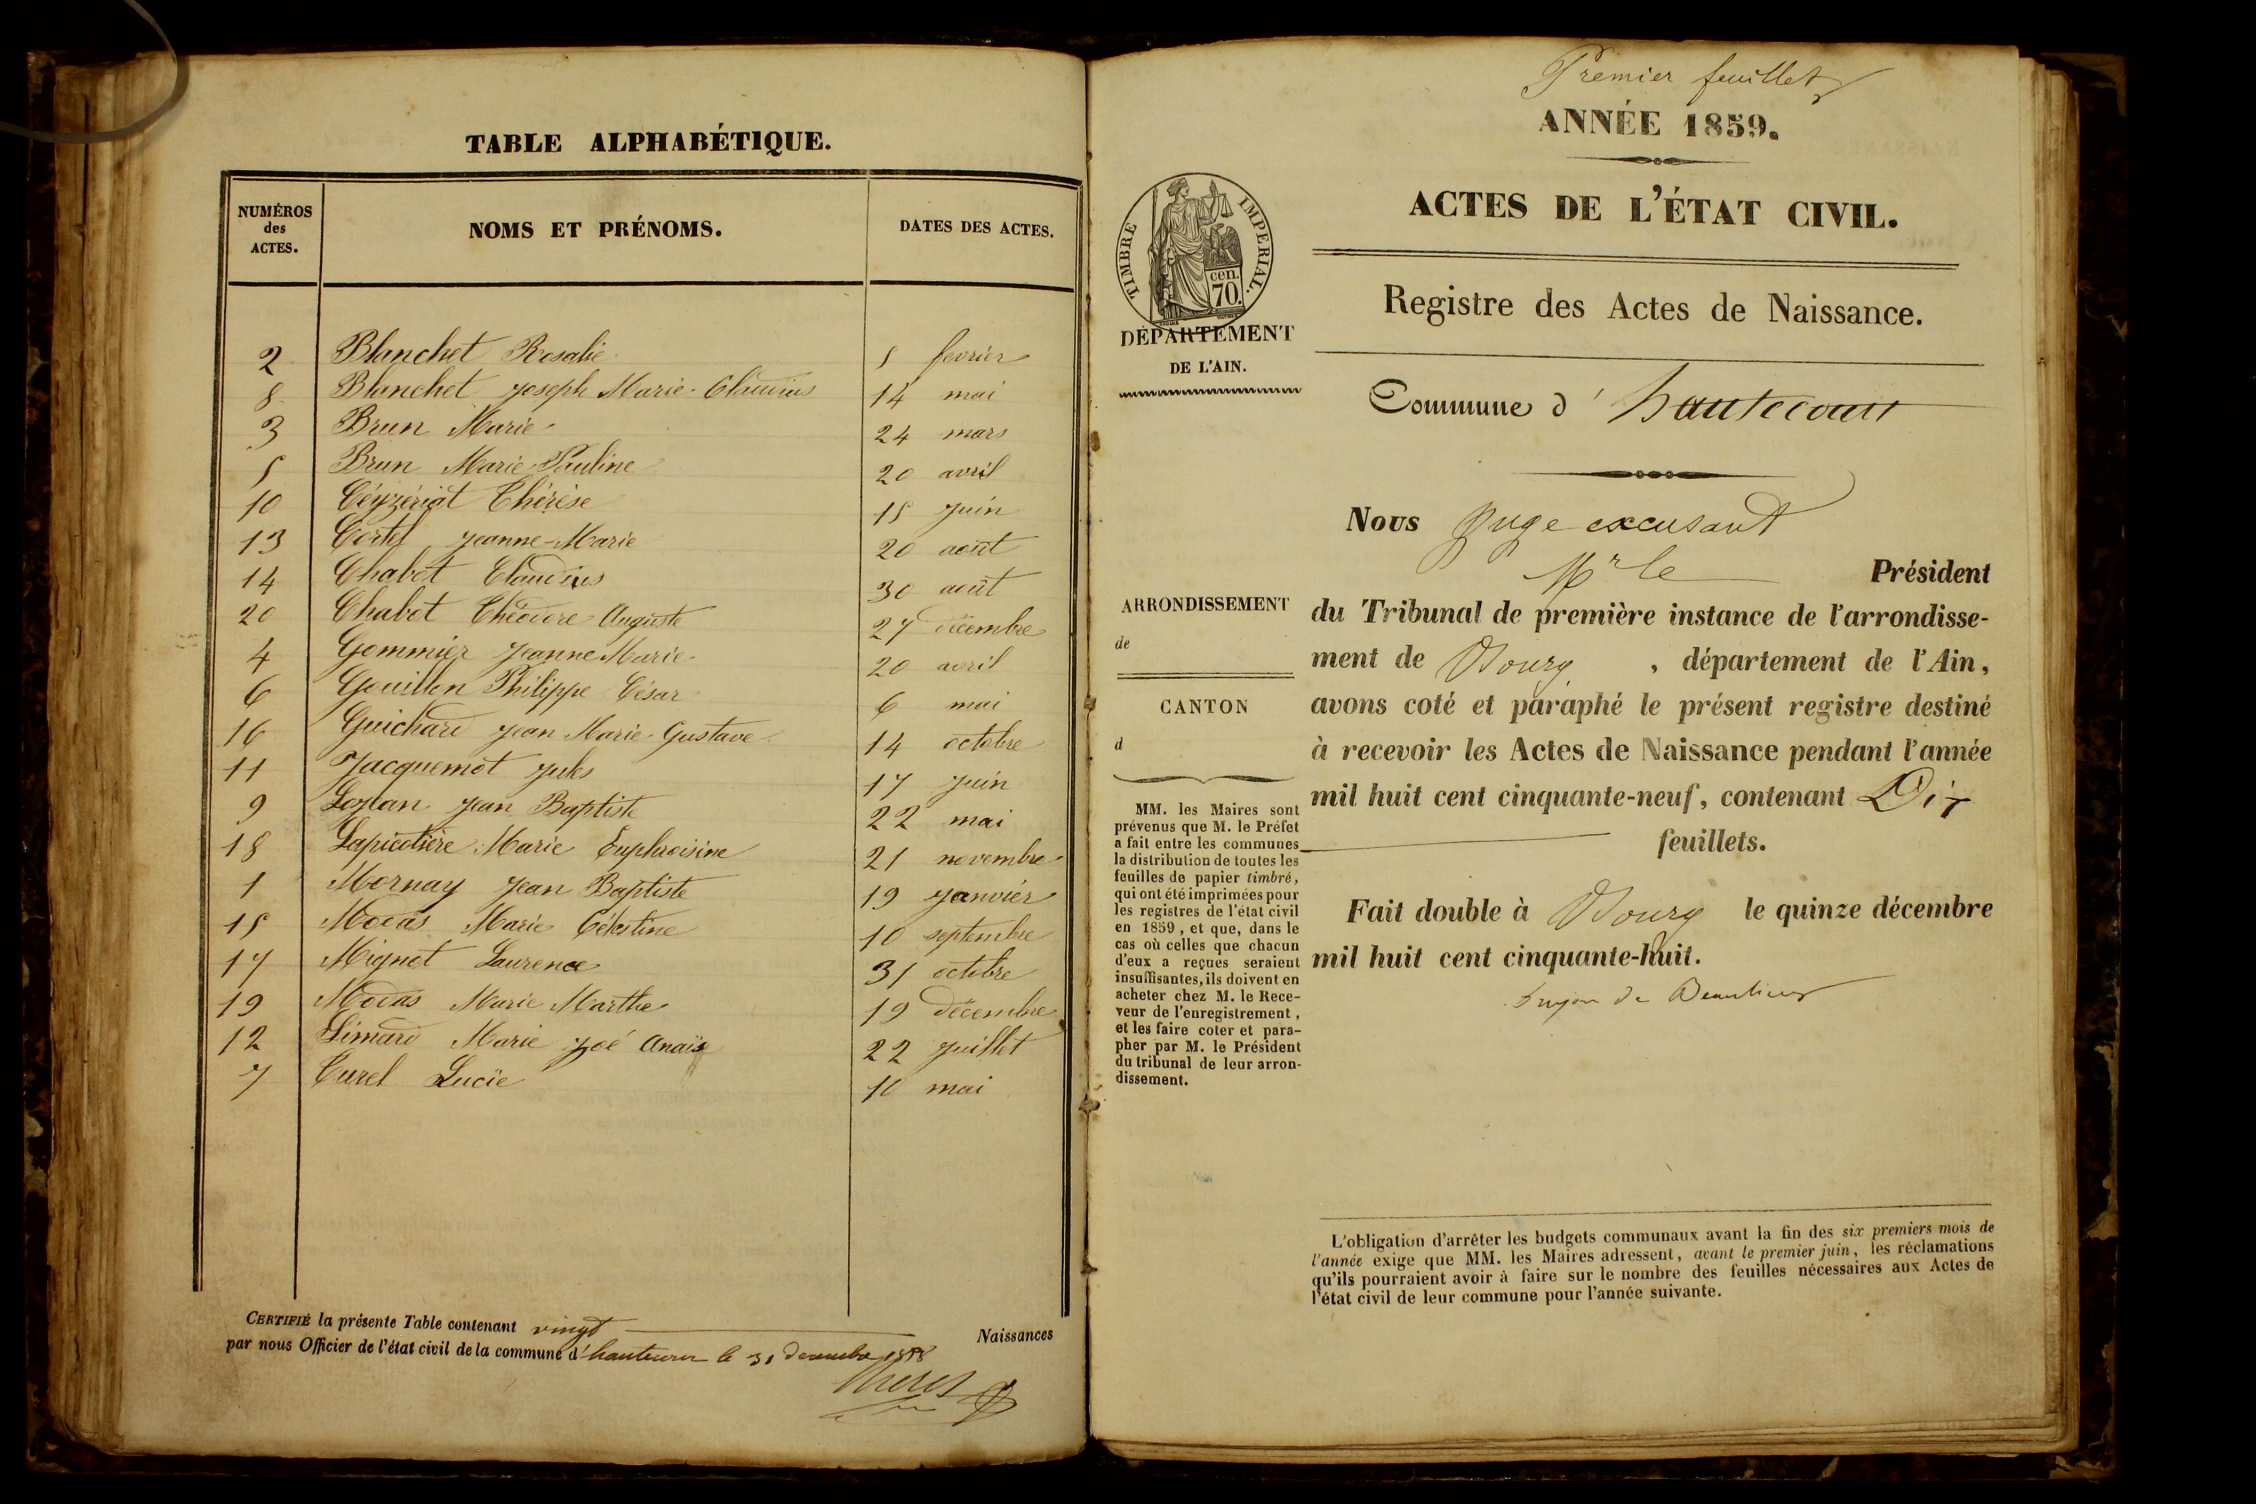 TABLE ALPHABÉTIQUE.
NUMÉROS des ACTES. NOMS ET PRÉNOMS. DATES DES ACTES.
2 Blanchet Rosalie 5 fevrier
8 Blanchet Joseph Marie-Claudius 14 mai
3 Brun Marie 24 mars
5 Brun Marie Pauline 20 avril
10 Céyzériat Thérèse 15 Juin
13 Cortel Jeanne-Marie 20 août
14 Chabot Claudius 30 août
20 Chabot Théodore Auguste 27 décembre
4 Gommier Jeanne Marie 20 avril
6 Gouillon Philippe César 6 mai
16 Guichard Jean Marie-Gustave 14 octobre
11 Jacquemot Jules 17 Juin
9 Jean Baptiste 22 mai
18 Lapicotière Marie Euphroisine 21 novembre
1 Mornay Jean Baptiste 19 Janvier
15 Modas Marie Célestine 10 septembre
17 Mignot Laurence 31 octobre
19 Modas Marie Marthe 19 décembre
12 Limard Marie Zoé Anaïs 22 Juillet
7 Curel Lucie 10 mai
CERTIFIÉ la présente Table contenant vingt Naissances
par nous Officier de l'état civil de la commune d' hautecour le 31 decembre 1858
Premier feuillet
ANNÉE 1859.
ACTES DE L'ÉTAT CIVIL.
TIMBRE IMPERIAL.
cen.
70.
Registre des Actes de Naissance.
DÉPARTEMENT
DE L'AIN.
Commune d' hautecour
Nous Juge excusant
Mr le Président
du Tribunal de première instance de l'arrondisse-
ment de Bourg, département de l'Ain,
avons coté et paraphé le présent registre destiné
à recevoir les Actes de Naissance pendant l'année
mil huit cent cinquante-neuf, contenant Dix
feuillets.
Fait double à Bourg le quinze décembre
mil huit cent cinquante-huit.
de Beaulieu
ARRONDISSEMENT
de
CANTON
d
MM. les Maires sont
prévenus que M. le Préfet
a fait entre les communes
la distribution de toutes les
feuilles de papier timbré,
qui ont été imprimées pour
les registres de l'état civil
en 1859, et que, dans le
cas où celles que chacun
d'eux a reçues seraient
insuffisantes, ils doivent en
acheter chez M. le Rece-
veur de l'enregistrement,
et les faire coter et para-
pher par M. le Président
du tribunal de leur arron-
dissement.
L'obligation d'arrêter les budgets communaux avant la fin des six premiers mois de
l'année exige que MM. les Maires adressent, avant le premier juin, les réclamations
qu'ils pourraient avoir à faire sur le nombre des feuilles nécessaires aux Actes de
l'état civil de leur commune pour l'année suivante.